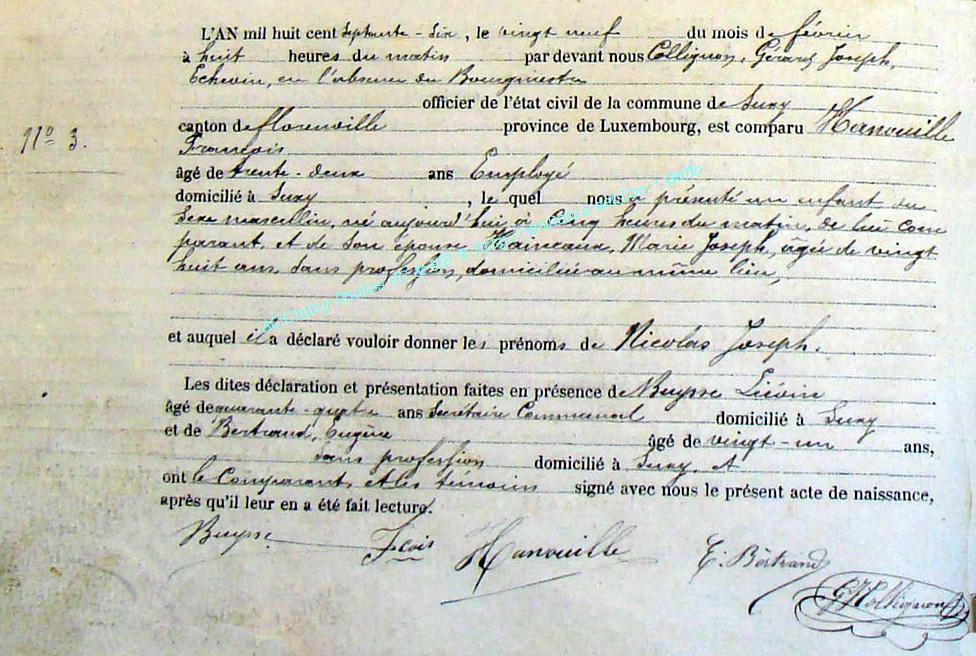 L'AN mil huit cent septante-six, le vingt neuf du mois de février
à huit heures du matin par devant nous Collignon, Gérard Joseph,
Echevin, en l'absence du Bourgmestre
officier de l'état civil de la commune de Suxy
N° 3.
canton de florenville province de Luxembourg, est comparu Hanouille
François
âgé de trente-deux ans Employé
domicilié à Suxy, le quel nous a présenté un enfant du
sexe masculin, né aujourd'hui à Cinq heures du matin, de lui com
parant, et de son épouse Haineaux, Marie Joseph, âgée de vingt
huit ans, sans profession, domiciliée au même lieu,
et auquel il a déclaré vouloir donner les prénoms de Nicolas Joseph.
Les dites déclaration et présentation faites en présence de Buysse Liévin
âgé de quarante-quatre ans Secrétaire Communal domicilié à Suxy
et de Bertrand, Eugène âgé de vingt-un ans,
sans profession domicilié à Suxy Et
ont le Comparant et les témoins signé avec nous le présent acte de naissance,
après qu'il leur en a été fait lecture.
Buysse Fcois Hanouille E. Bertrand
GJCollignon